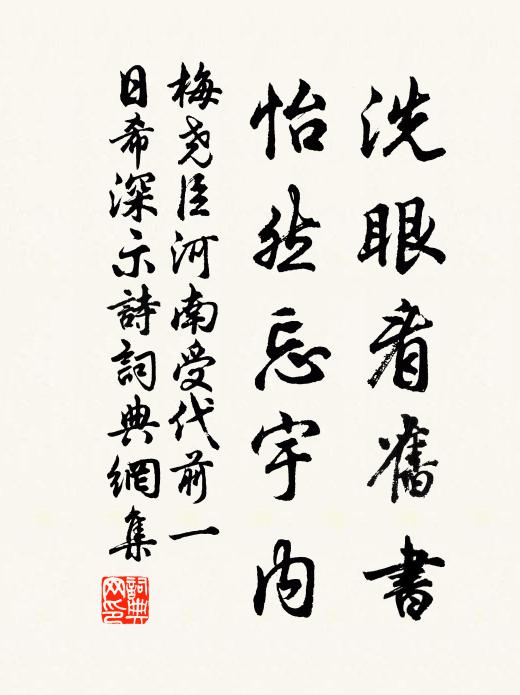 洗眼看舊書
怡然忘宇内
梅堯臣河南受代前一
日希深示詩詞典網集
詞典网印